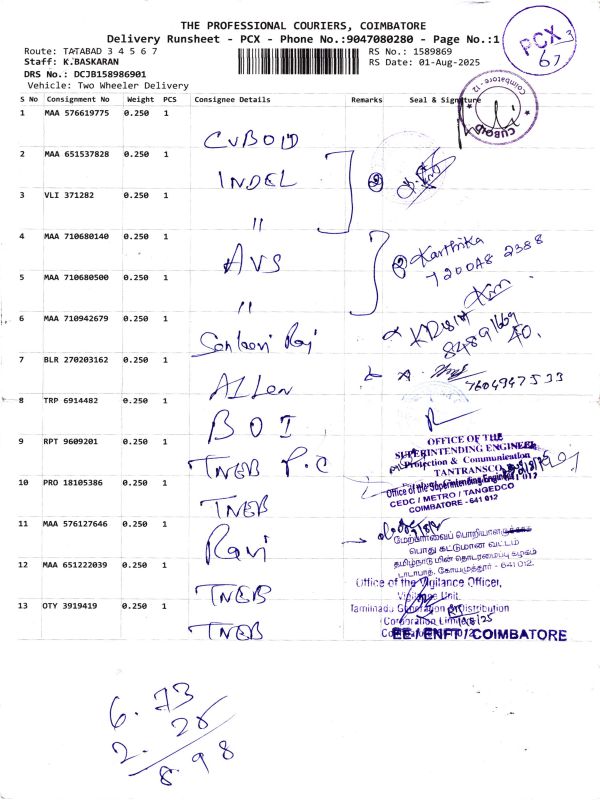 THE PROFESSIONAL COURIERS, COIMBATORE
Delivery Runsheet - PCX - Phone No.:9047080280 - Page No.:1
Route: TATABAD 3 4 5 6 7
RS No.: 1589869
Staff: K.BASKARAN
RS Date: 01-Aug-2025
DRS No.: DCJB158986901
Vehicle: Two Wheeler Delivery
PCX 3
67
Coimbatore - 12
CUBOID
S No Consignment No Weight PCS Consignee Details Remarks Seal & Signature
1 MAA 576619775 0.250 1
CUBOID
2 MAA 651537828 0.250 1
INDEL
3 VLI 371282 0.250 1
"
4 MAA 710680140 0.250 1
AVS
Karthika
5 MAA 710680500 0.250 1
"
6 MAA 710942679 0.250 1
7 BLR 270203162 0.250 1
ALLen
7604947533
8 TRP 6914482 0.250 1
BOI
OFFICE OF THE
SUPERINTENDING ENGINEER
Protection & Communication
TANTRANSCO
9 RPT 9609201 0.250 1
TNEB P.C
Office of the Superintending Engineer
CEDC / METRO / TANGEDCO
COIMBATORE - 641 012
10 PRO 18105386 0.250 1
TNEB
11 MAA 576127646 0.250 1
Ravi
மேற்பார்வைப் பொறியாளர்
பொது கட்டுமான வட்டம்
தமிழ்நாடு மின் தொடரமைப்பு கழகம்
டாடாபாத், கோயமுத்தூர் - 641 012.
12 MAA 651222039 0.250 1
TNEB
Office of the Vigilance Officer,
Vigilance Unit.
Tamilnadu Generation & Distribution
Corporation Limited
13 OTY 3919419 0.250 1
TNEB
EE / ENFT / COIMBATORE
6.73
2.25
8.98